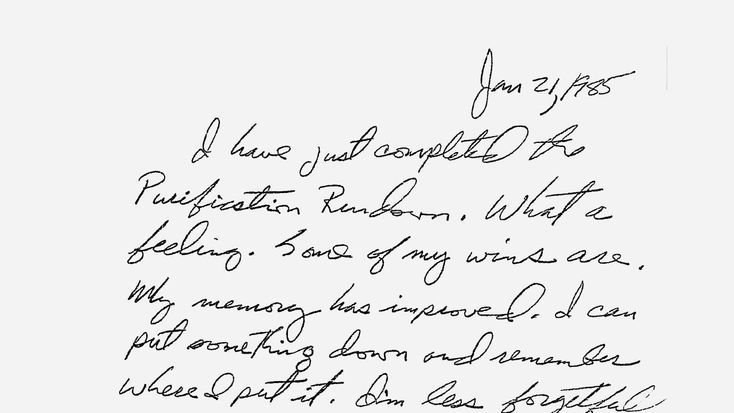 Jan 21, 1985
I have just completed the
Purification Rundown. What a
feeling. Some of my wins are.
My memory has improved. I can
put something down and remember
where I put it. I'm less forgetful